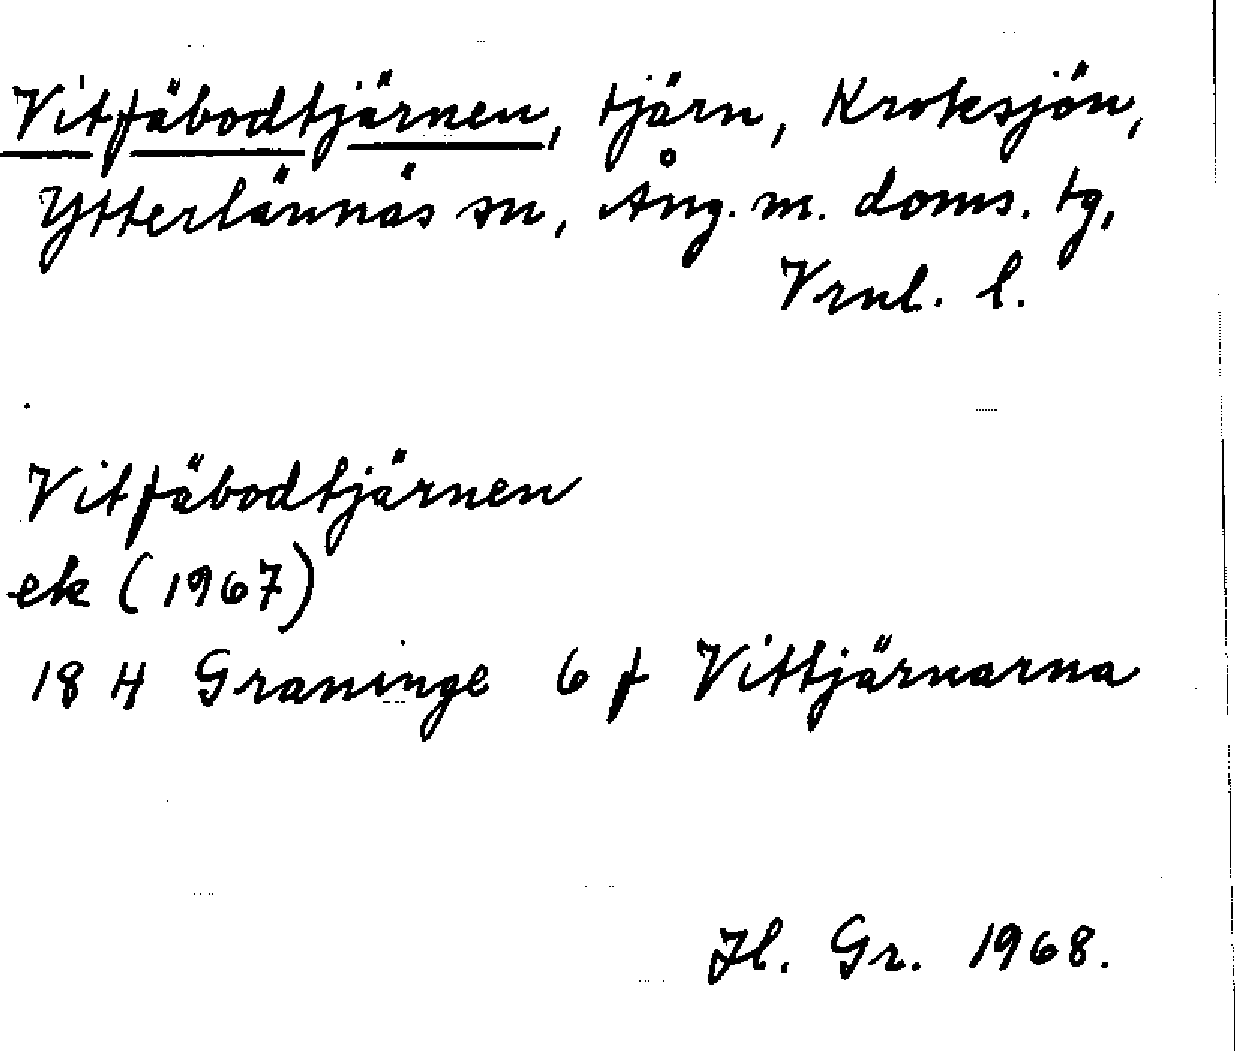 Vitfäbodtjärnen, tjärn, Kroksjön,
Ytterlännäs sn, Ång. m. doms. tg,
Vrnl. l.
Vitfäbodtjärnen
ek (1967)
18 H Graninge 6 f Vittjärnarna
Hl. Gr. 1968.